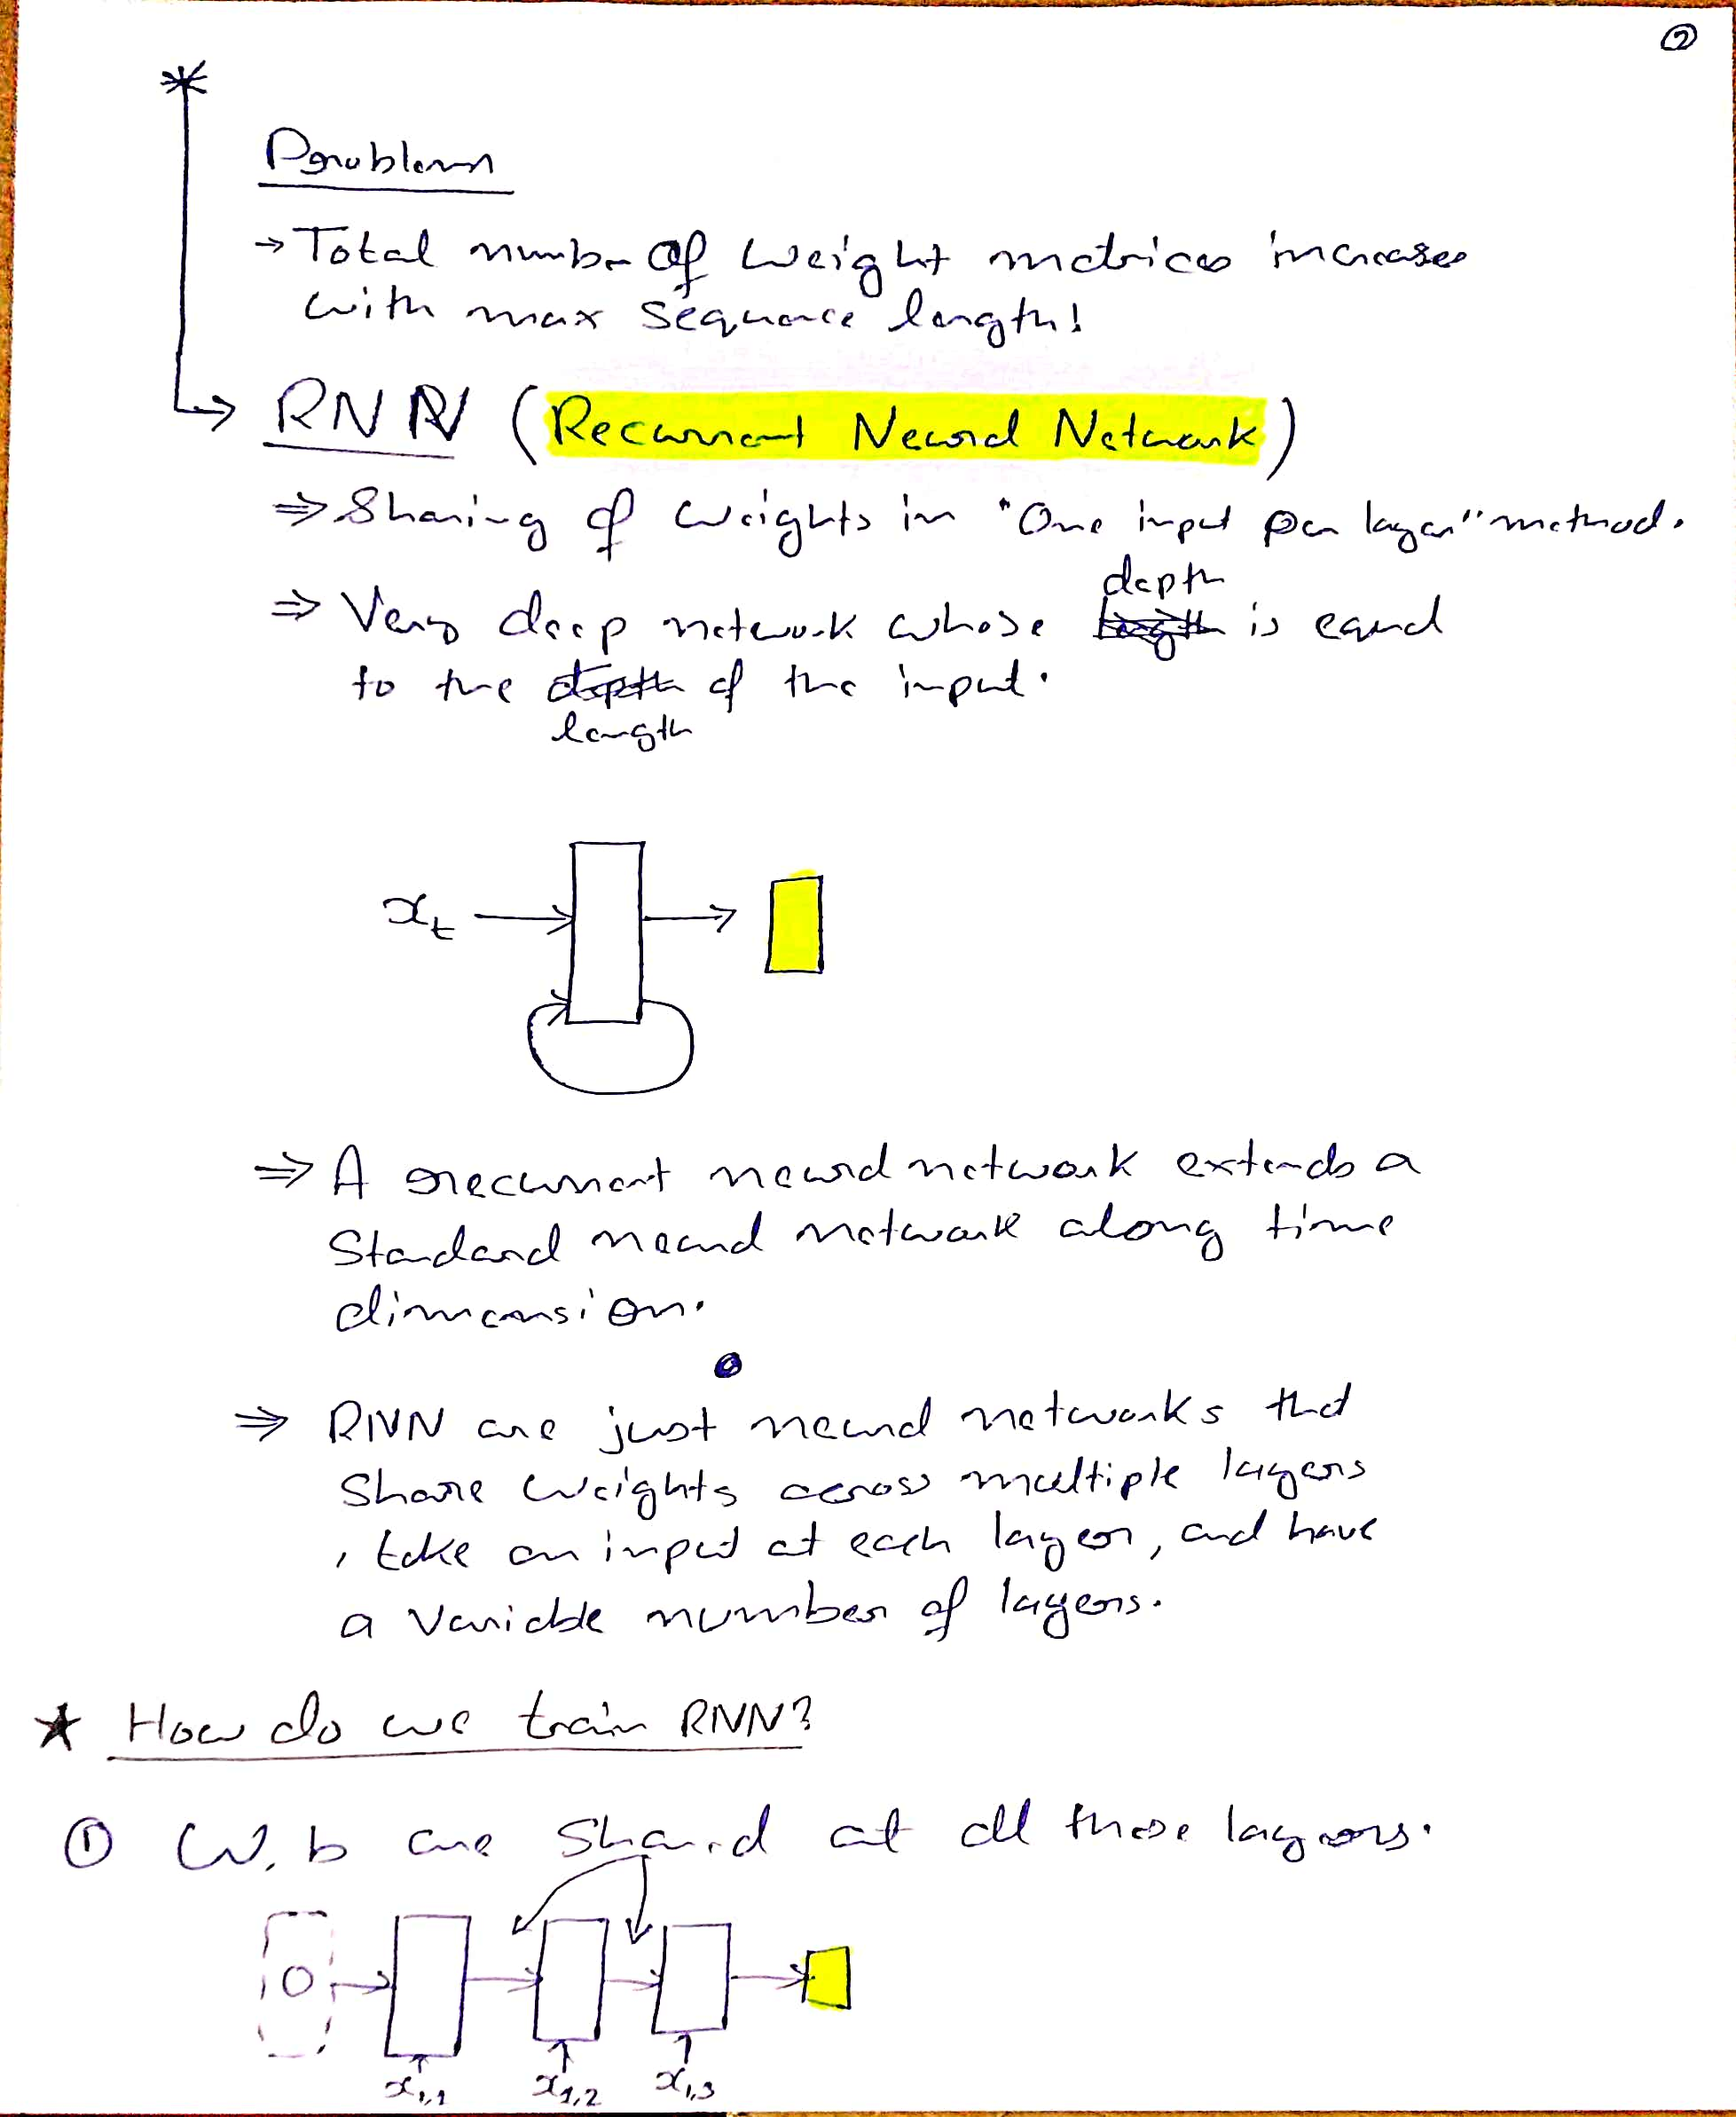 ②
Problem
→ Total number of weight matrices increases
with max sequence length!
→ RNN (Recurrent Neural Network)
⇒ Sharing of weights in "One input per layer" method.
depth
⇒ Very deep network whose length is equal
to the depth of the input.
length
xₜ
⇒ A recurrent neural network extends a
Standard neural network along time
dimension.
⇒ RNN are just neural networks that
Share weights across multiple layers
, take an input at each layer, and have
a variable number of layers.
★ How do we train RNN?
① W, b are Shared at all these layers.
O
x₁,₁ x₁,₂ x₁,₃